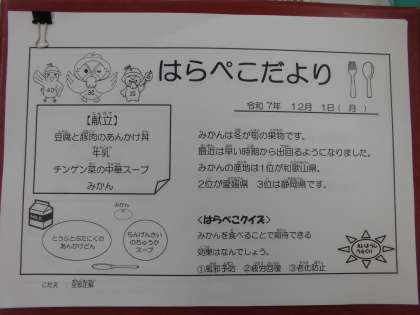 はらぺこだより
令和7年 12月 1日(月)
【献立】
豆腐と豚肉のあんかけ丼
牛乳
チンゲン菜の中華スープ
みかん
みかんは冬が旬の果物です。
最近は早い時期から出回るようになりました。
みかんの産地は1位が和歌山県。
2位が愛媛県 3位は静岡県です。
みかん
とうふとぶたにくの
あんかけどん
ちんげんさい
のちゅうか
スープ
<はらぺこクイズ>
みかんを食べることで期待できる
効果はなんでしょう。
①風邪予防 ②疲労回復 ③老化防止
こたえ : 全部正解